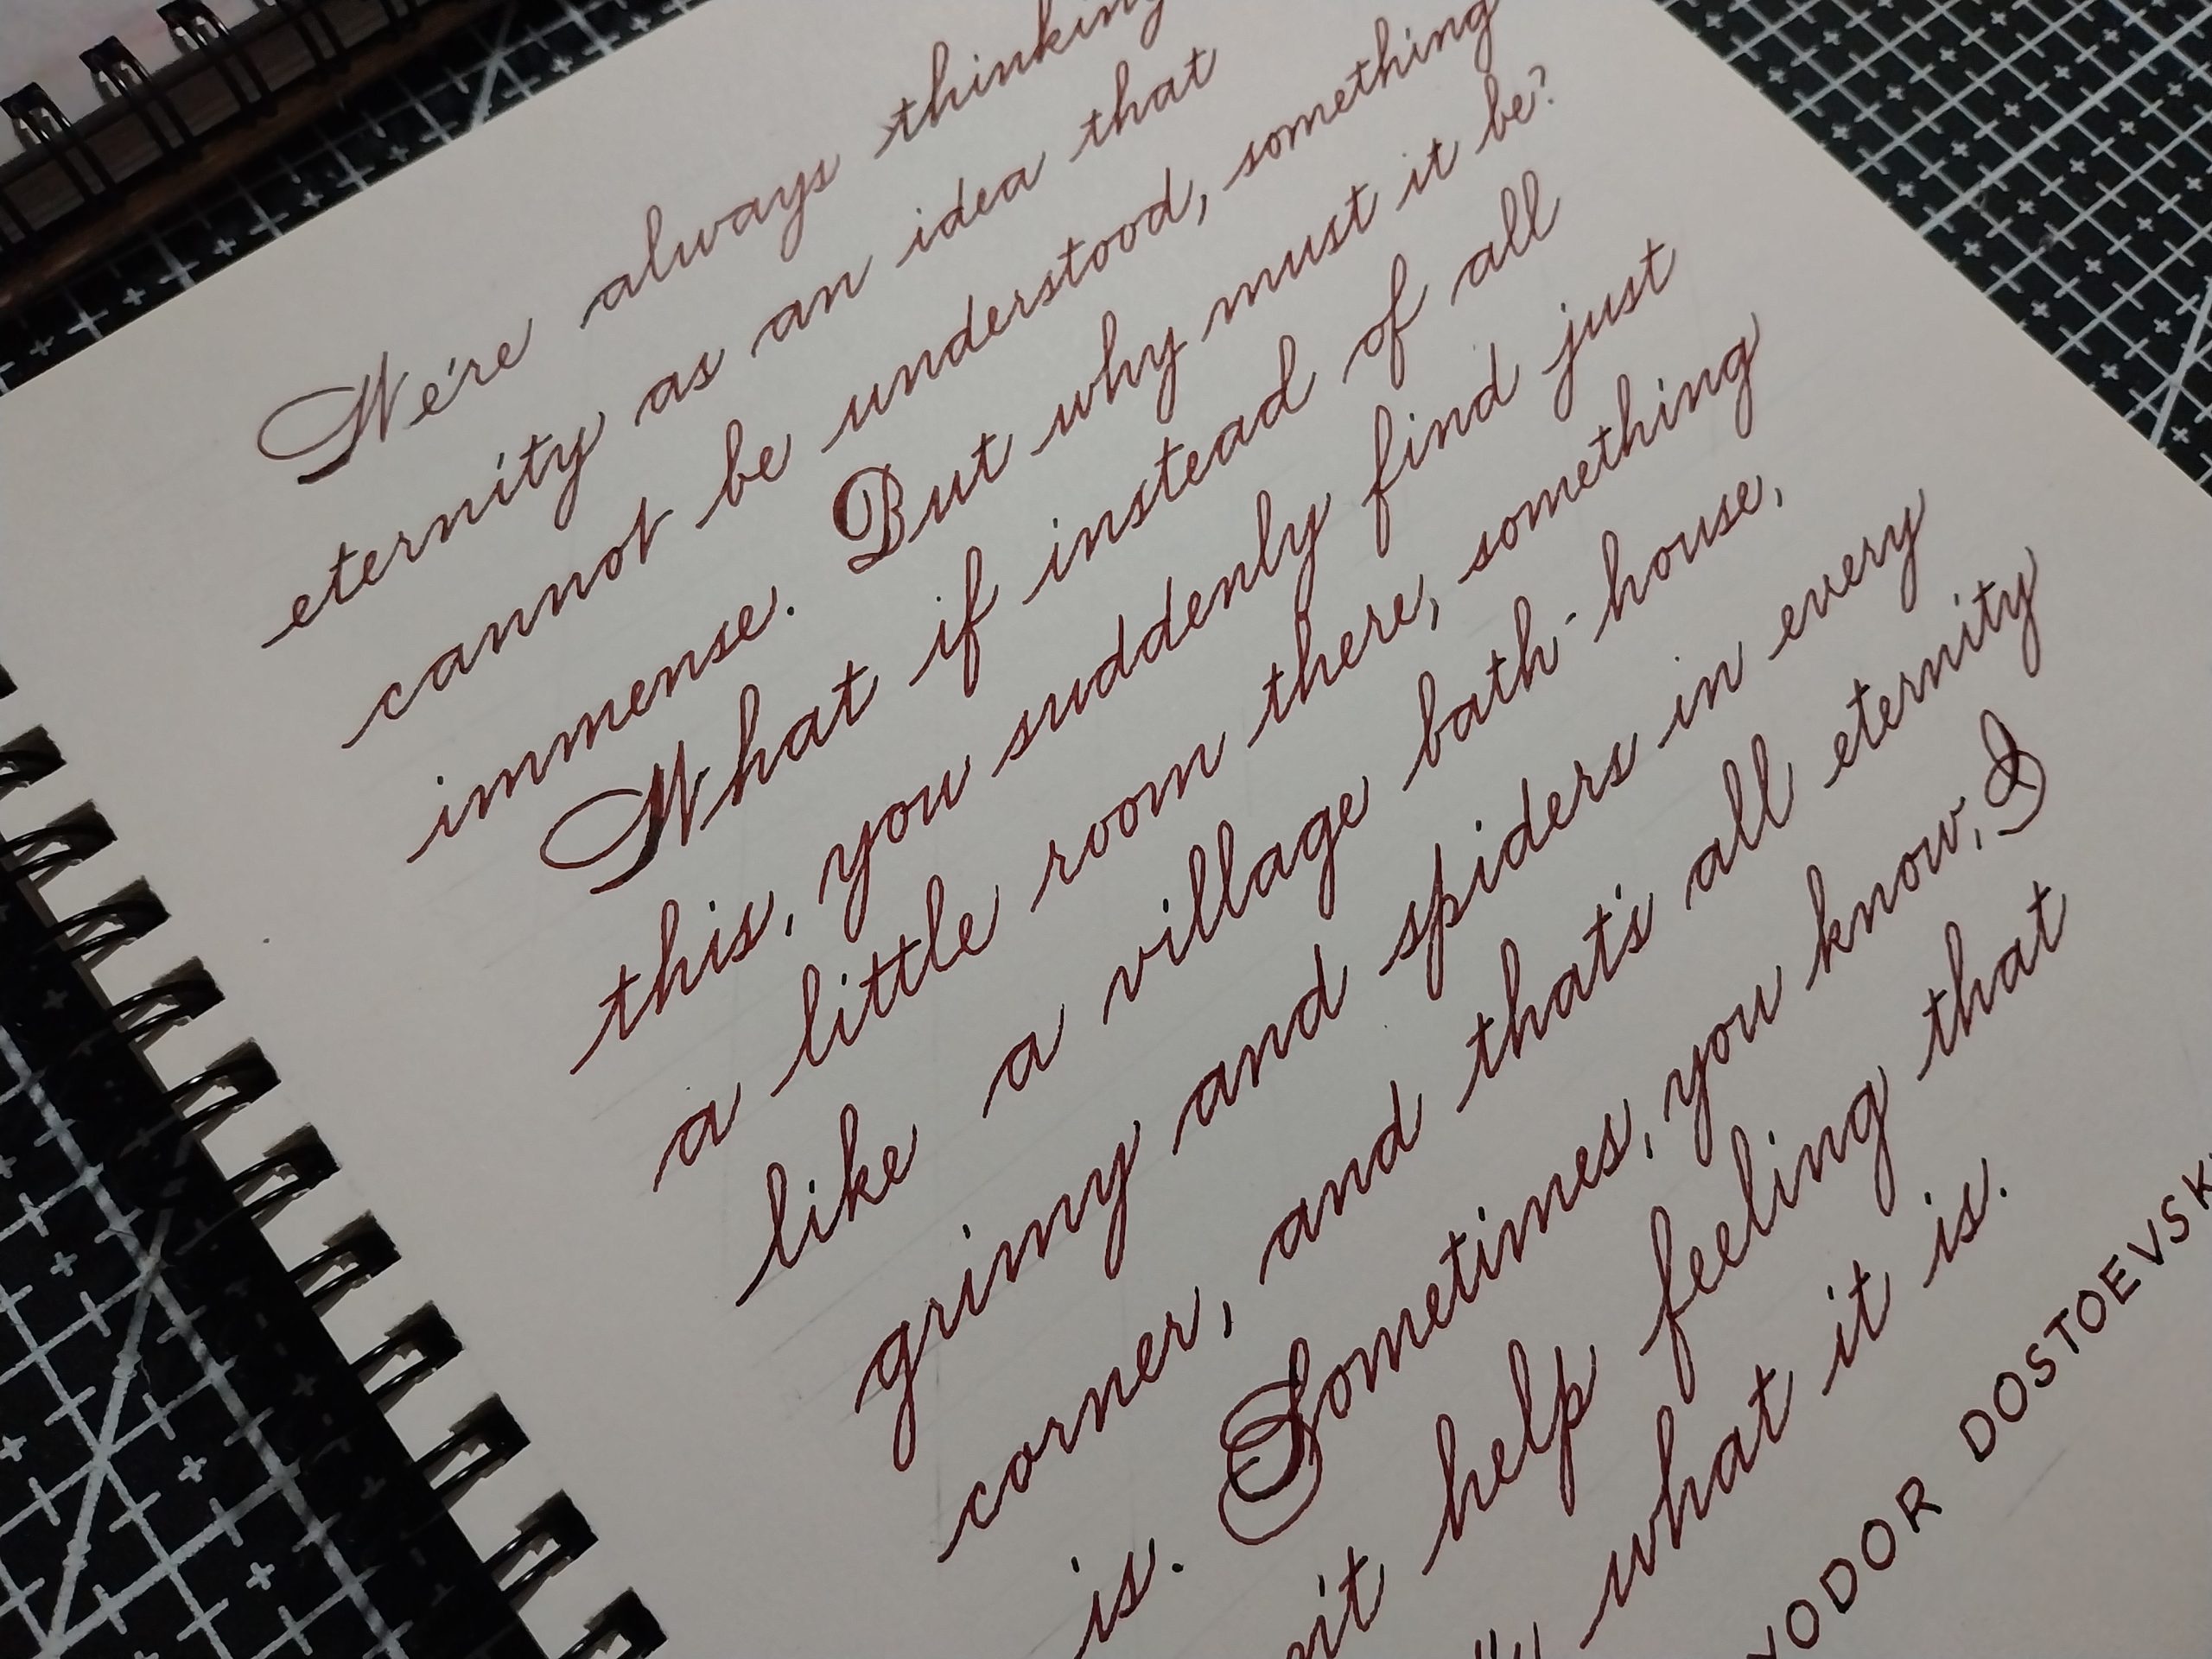 We're always thinking
eternity as an idea that
cannot be understood, something
immense. But why must it be?
What if instead of all
this, you suddenly find just
a little room there, something
like a village bath-house,
grimy and spiders in every
corner, and that's all eternity
is. Sometimes, you know, I
help feeling that
what it is.
DOSTOEVSK